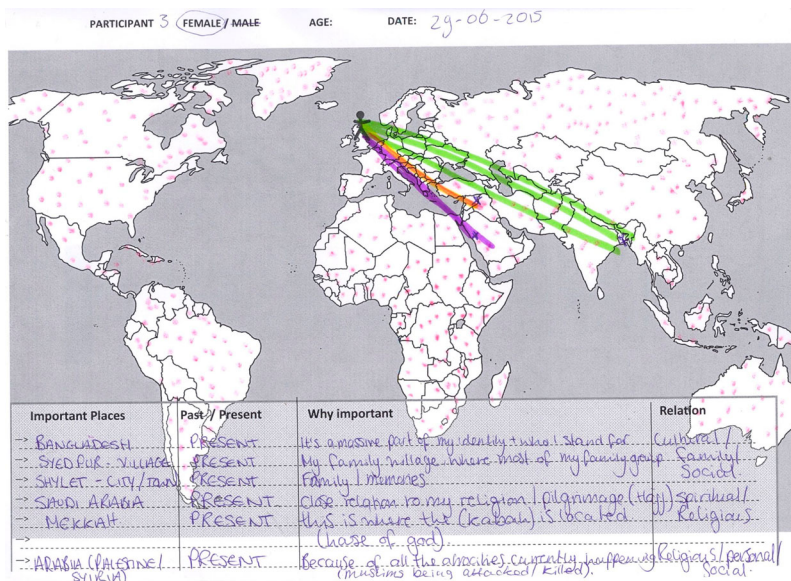 PARTICIPANT 3 FEMALE / MALE AGE: DATE: 29-06-2015
Important Places Past / Present Why important Relation
-> BANGLADESH PRESENT It's a massive part of my identity + who I stand for Cultural /
-> SYEDPUR - VILLAGE PRESENT My family village where most of my family group Family /
-> SHYLET - CITY / TOWN PRESENT Family / memories Social.
-> SAUDI ARABIA PRESENT Close relation to my religion / pilgrimage (Hajj) Spiritual /
-> MEKKAH PRESENT this is where the (Kabah) is located Religious
-> (house of god).
-> ARABIA (PALESTINE / PRESENT Because of all the atrocities currently happening Religious / personal /
SYRIA) (muslims being attacked / killed). social.